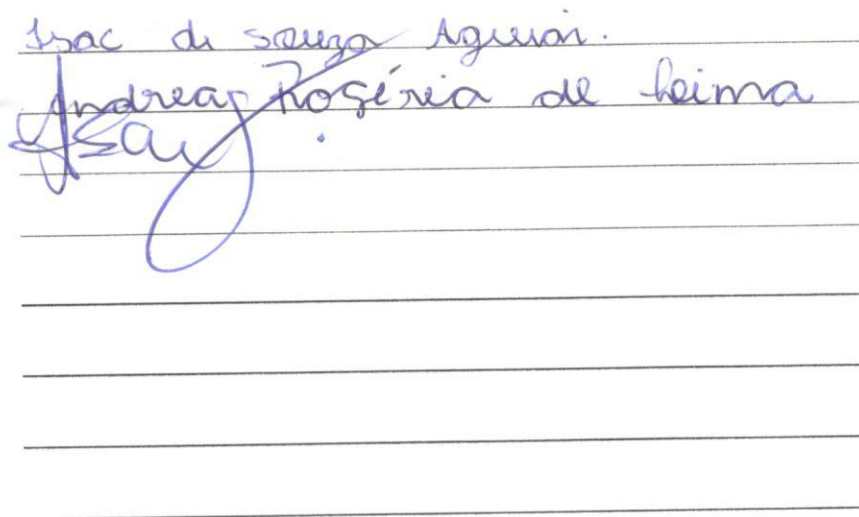 Isac di Souza Aguiar.
Andrea Rogéria de Leima